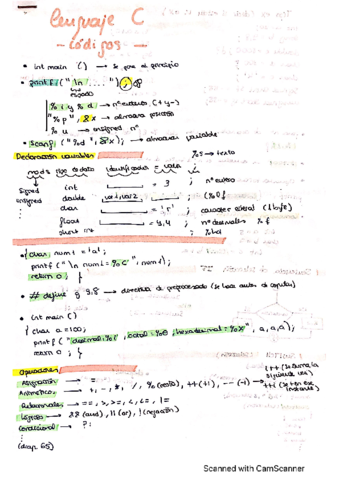 Lenguaje C
- códigos -
• int main () → se pone al principio
• printf ("\n ..... ");
% i y % d → nº enteros (+ y -)
"% p", &x → almacena posición
% u → unsigned nº
• scanf ("%d", &x); → almacenar variable
Declaración variables %s → texto
mods tipo de dato identificador = valor ;
signed int = 3 ; nº entero
unsigned double var1, var2 ; (%lf)
char = 'c' ; carácter literal (1 byte)
float = 4,4 ; nº decimales %f
short int ; %hd
• { char num1 = 'a';
printf ("\n num1 = %c", num1);
return 0; }
• # define g 9,8 → directiva de preprocesado (se hace antes de compilar)
• int main ()
{ char a = 100;
printf ("decimal: %i, octal: %o, hexadecimal: %x", a,a,a);
return 0; }
Operadores
Asignación → =
Aritmético → +, -, *, /, % (resto), ++ (+1), -- (-1)
Relacionales → ==, >, >=, <, <=, !=
Lógicos → && (and), || (or), ! (negación)
Condicional → ?:
(diap 65)
Scanned with CamScanner